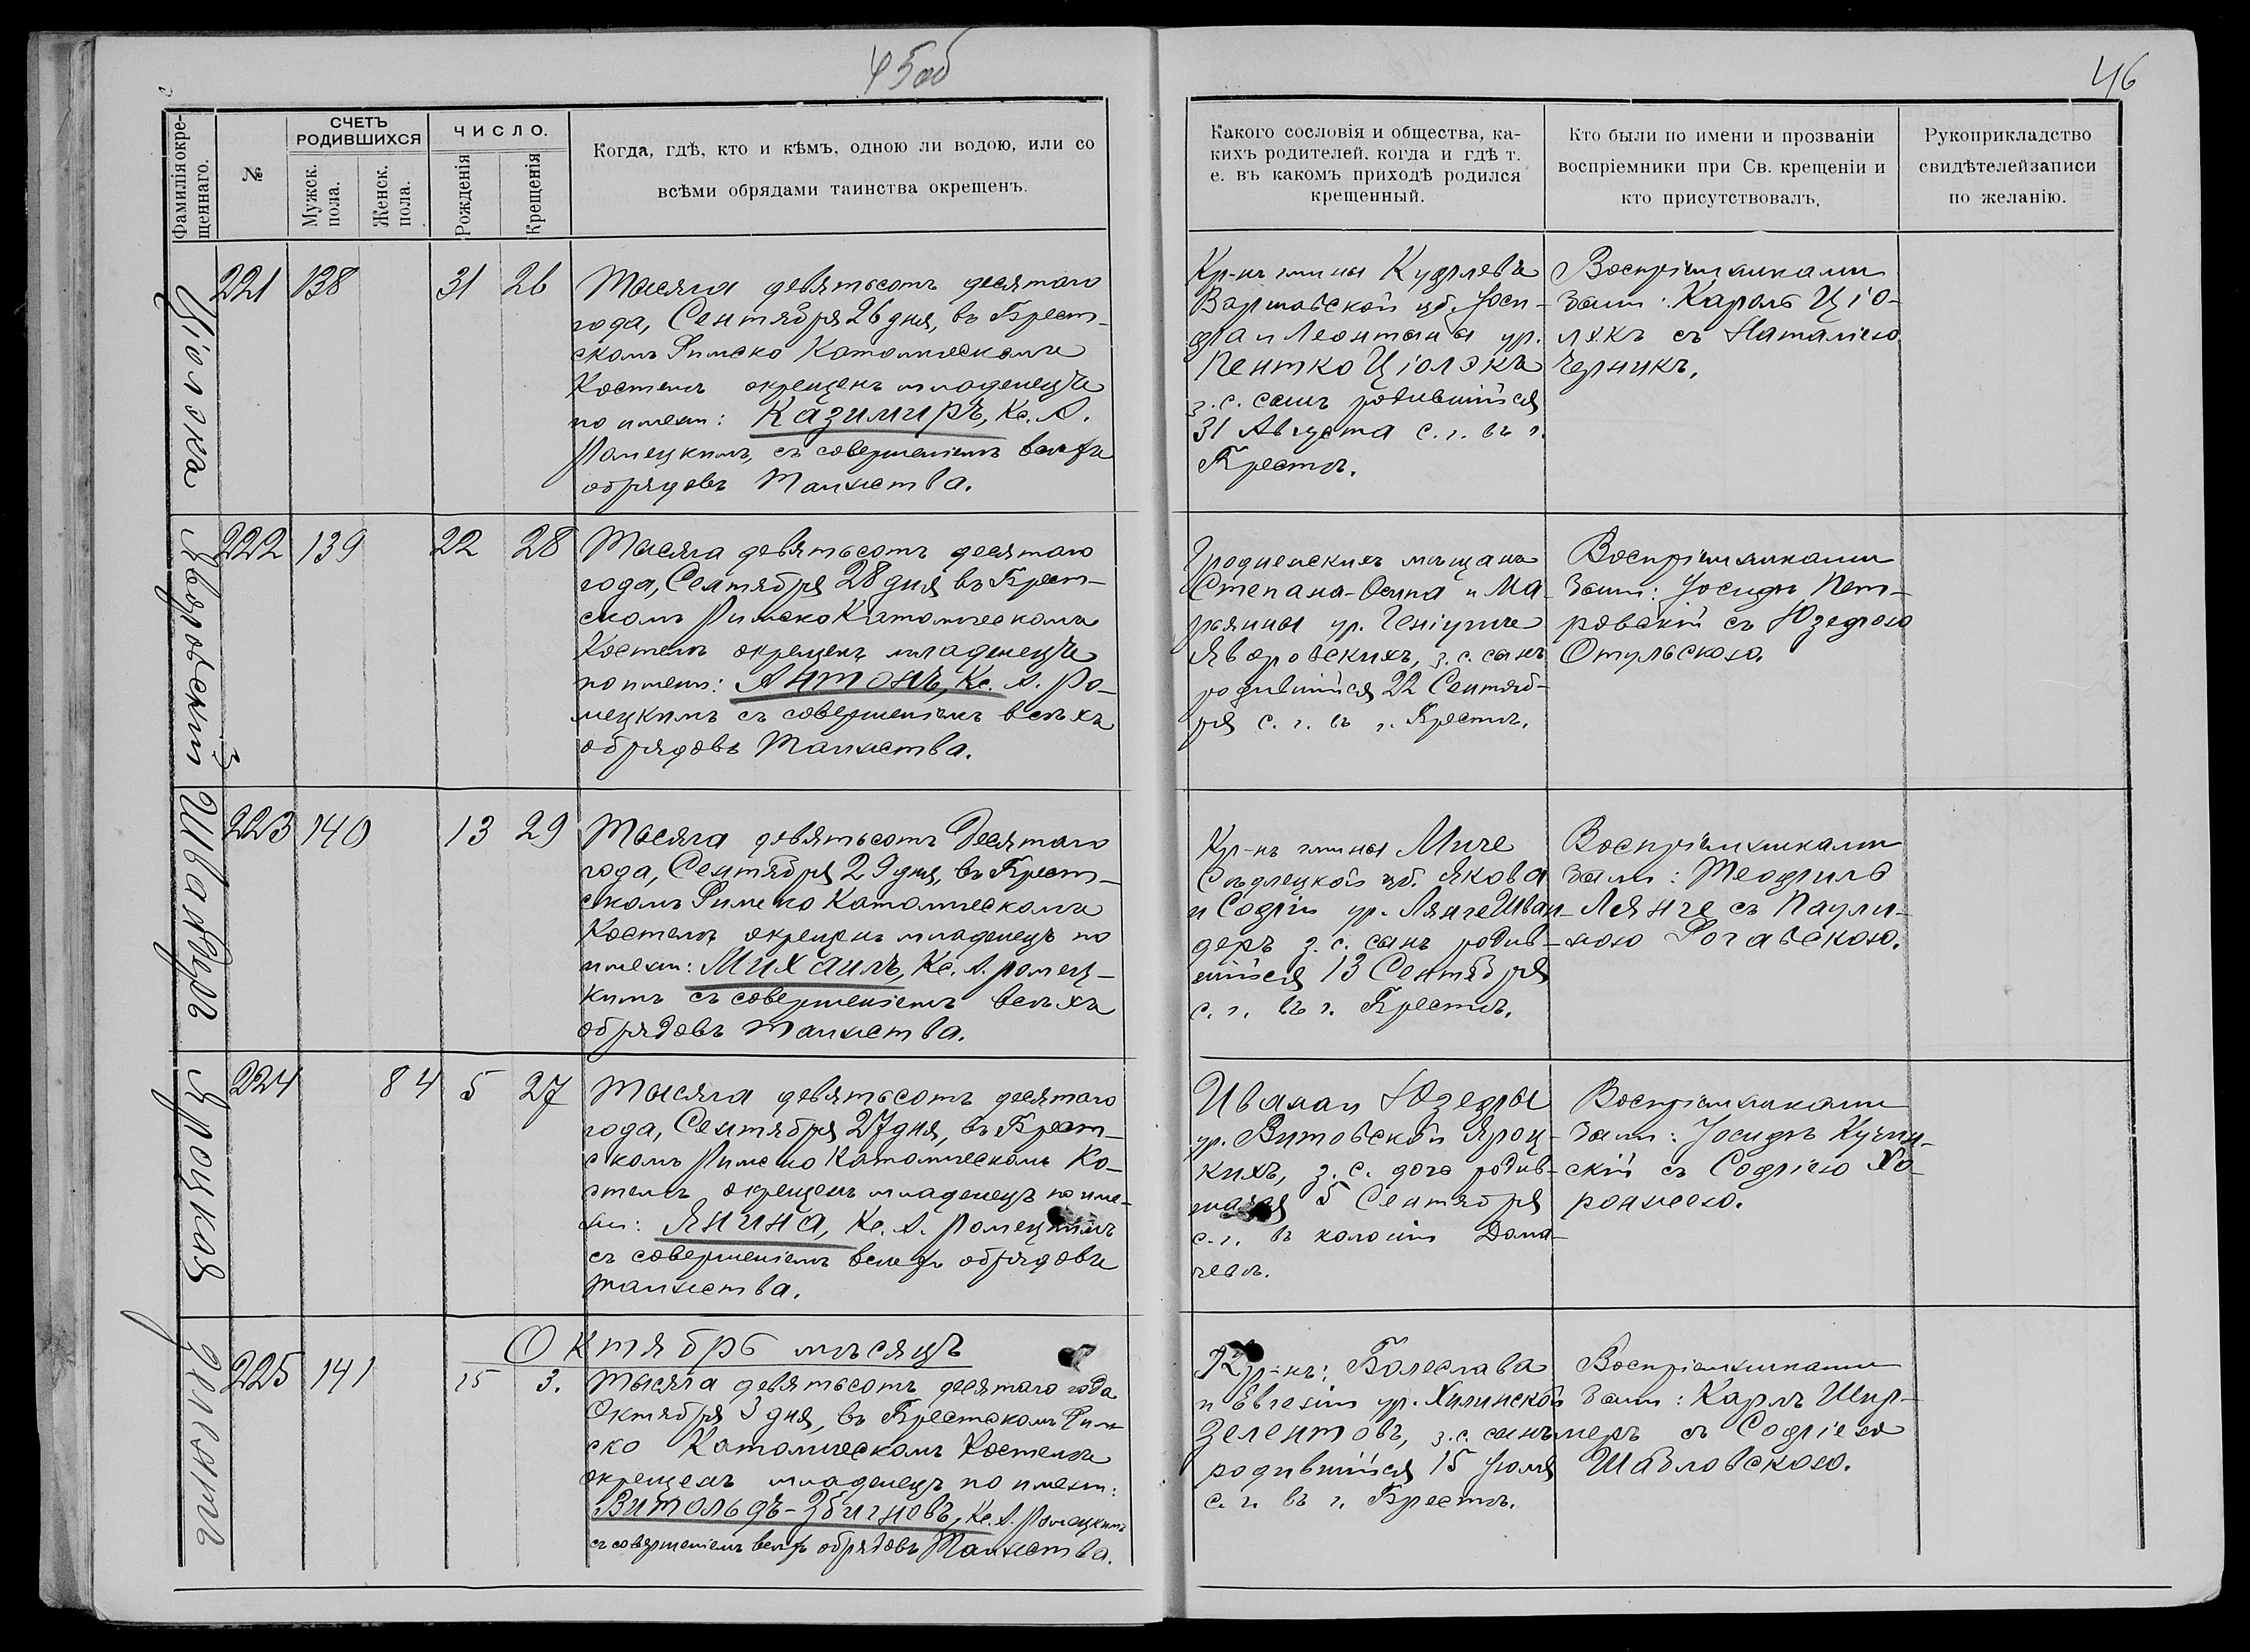 45об
46
Фамилія окре-
щеннаго.
№
СЧЕТЪ
РОДИВШИХСЯ
Мужск.
пола.
Женск.
пола.
ЧИСЛО.
Рожденія
Крещенія
Когда, гдѣ, кто и кѣмъ, одною ли водою, или со
всѣми обрядами таинства окрещенъ.
Какого сословія и общества, ка-
кихъ родителей, когда и гдѣ т.
е. въ какомъ приходѣ родился
крещенный.
Кто были по имени и прозванію
воспріемники при Св. крещеніи и
кто присутствовалъ.
Рукоприкладство
свидѣтелей записи
по желанію.
221 138 31 26
Тысяча девятьсотъ десятаго
года, Сентября 26 дня, въ Брест-
скомъ Римско Католическомъ
Костелѣ окрещенъ младенецъ
по имени: Казимиръ, Кс. А.
Ромецкимъ, съ совершеніемъ всѣхъ
обрядовъ Таинства.
Кр-нъ гмины
Варшавской губ. Іоси-
фа и Леонтины ур.
Пентко Ціолэкъ
з. с. сынъ родившійся
31 Августа с. г. въ г.
Брестѣ.
Воспріемниками
были: Кароль Ціо-
лэкъ съ Наталіею
Черникъ.
Яворовскій
222 139 22 28
Тысяча девятьсотъ десятаго
года, Сентября 28 дня въ Брест-
скомъ Римско Католическомъ
Костелѣ окрещенъ младенецъ
по имени: Антонъ, Кс. А. Ро-
мецкимъ съ совершеніемъ всѣхъ
обрядовъ Таинства.
Гродненскихъ мѣщанъ
Степана-Осипа и Ма-
рьянны ур.
Яворовскихъ, з. с. сынъ
родившійся 22 Сентяб-
ря с. г. въ г. Брестѣ.
Воспріемниками
были: Іосифъ Пет-
ровскій съ Юзефою
Отульскою.
Швандеръ
223 140 13 29
Тысяча девятьсотъ Десятаго
года, Сентября 29 дня, въ Брест-
скомъ Римско Католическомъ
Костелѣ окрещенъ младенецъ по
имени: Михаилъ, Кс. А. Ромец-
кимъ съ совершеніемъ всѣхъ
обрядовъ таинства.
Кр-нъ гмины
Сѣдлецкой губ. Якова
и Софіи ур. Лянге Шван-
деръ з. с. сынъ родив-
шійся 13 Сентября
с. г. въ г. Брестѣ.
Воспріемниками
были: Теофиль
Лянге съ Паули-
ною Рогавскою.
Яроцкая
224 84 5 27
Тысяча девятьсотъ десятаго
года, Сентября 27 дня, въ Брест-
скомъ Римско Католическомъ Ко-
стелѣ окрещенъ младенецъ по име-
ни: Янина, Кс. А. Ромецкимъ
съ совершеніемъ всѣхъ обрядовъ
таинства.
Ивана и Юзефы
ур. Витовской Яроц-
кихъ, з. с. дочь родив-
шаяся 5 Сентября
с. г. въ колоніи Дома-
чевѣ.
Воспріемниками
были: Іосифъ
скій съ Софіею
Октябрь мѣсяцъ
225 141 15 3.
Тысяча девятьсотъ десятаго года
Октября 3 дня, въ Брестскомъ Рим-
ско Католическомъ Костелѣ
окрещенъ младенецъ по имени:
Витольдъ-Збигневъ, Кс. А. Ромецкимъ
съ совершеніемъ всѣхъ обрядовъ Таинства.
Кр-нъ: Болеслава
и Евгеніи ур. Хилинской
Зелентовъ, з. с. сынъ
родившійся 15 Іюля
с. г. въ г. Брестѣ.
Воспріемниками
были: Карлъ Шир-
меръ съ Софіею
Шабловскою.